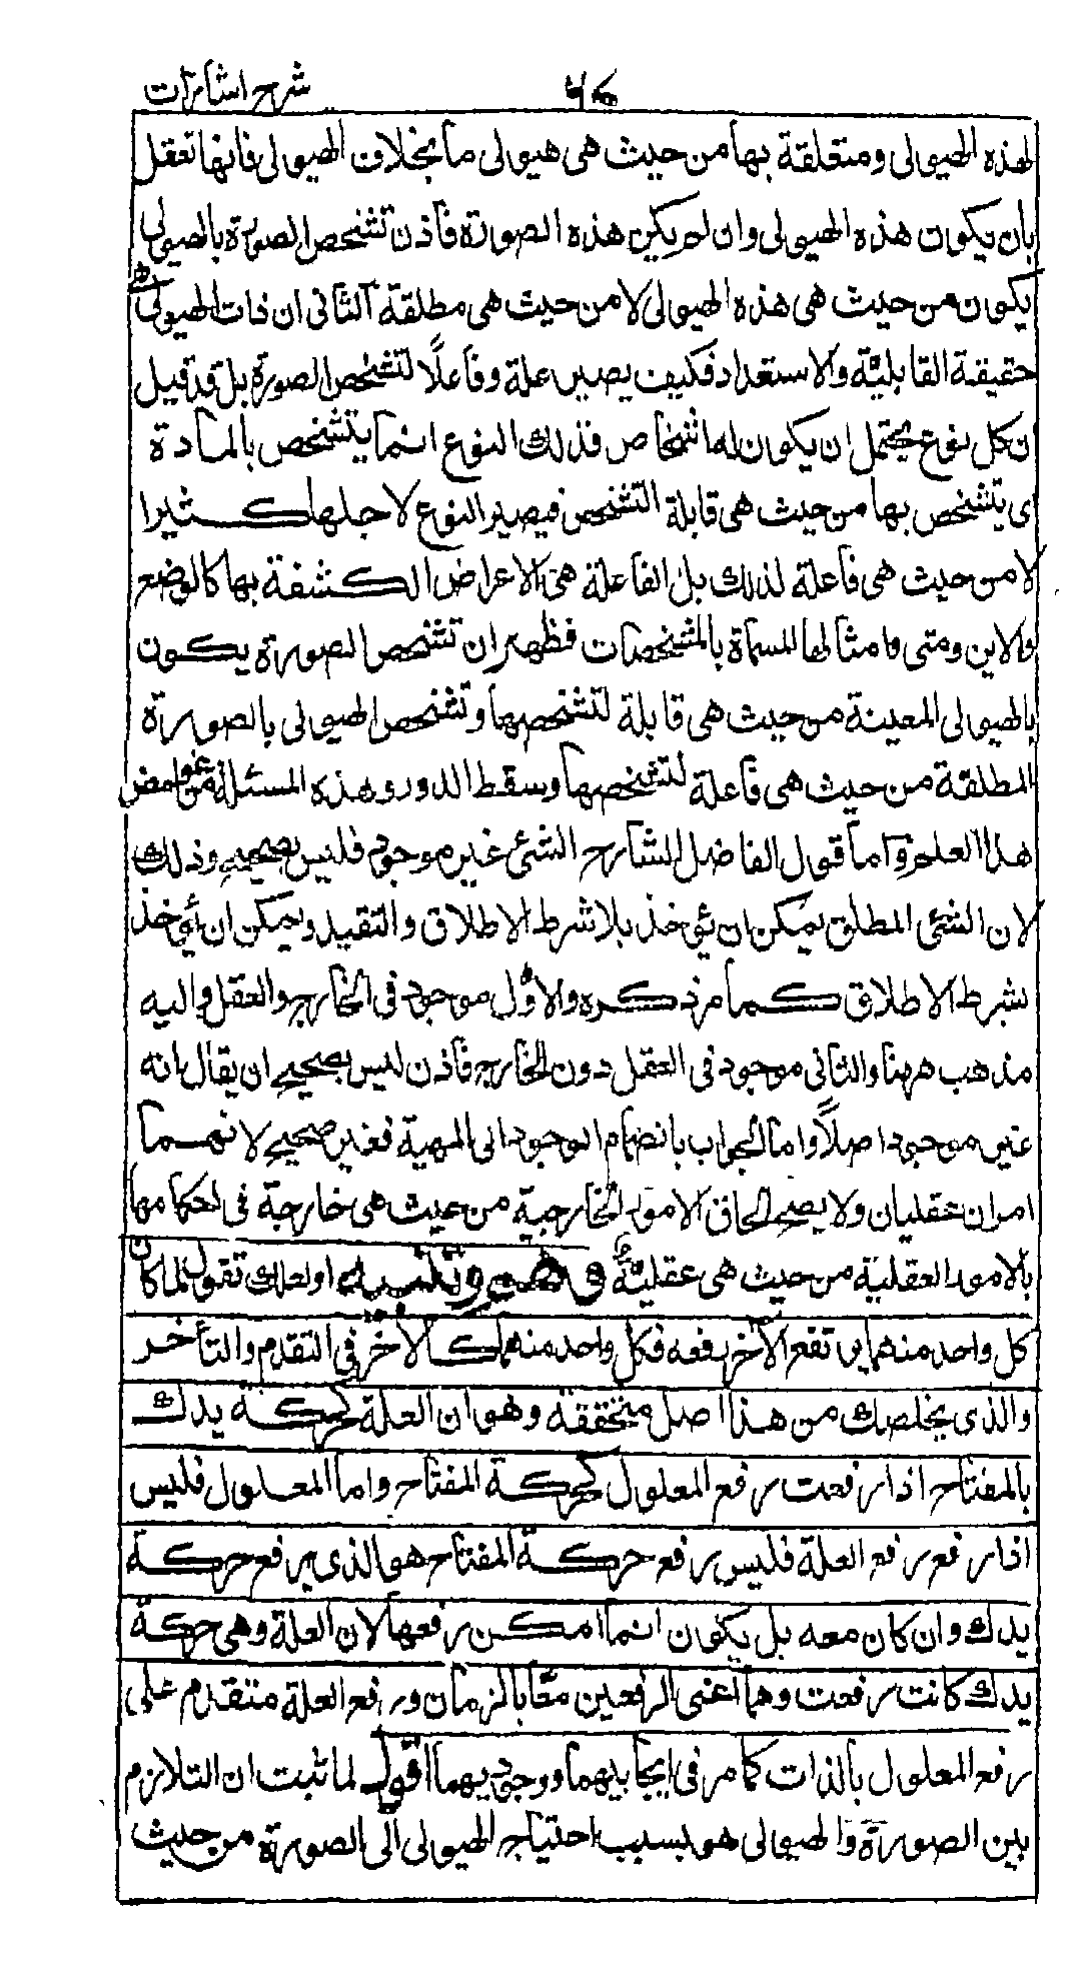 شرح اشارات
لهذه الهيولى ومتعلقة بها من حيث هى هيولى ما بخلاف الهيولى فانها تعقل
بان يكون هذه الهيولى وان لم يكن هذه الصورة فاذن تشخص الصورة بالهيولى
يكون من حيث هى هذه الهيولى لا من حيث هى مطلقة الثانى ان ذات الهيولى هى
حقيقة القابلية والاستعداد فكيف يصير علة وفاعلًا لتشخص الصورة بل قد قيل
ان كل نوع يحتمل ان يكون له اشخاص فذلك النوع انما يتشخص بالمادة
اى يتشخص بها من حيث هى قابلة التشخص فيصير النوع لاجلها كثيرا
لا من حيث هى فاعلة لذلك بل الفاعلة هى الاعراض المكتنفة بها كالوضع
والاين ومتى وامثالها المسماة بالمشخصات فظهر ان تشخص الصورة يكون
بالهيولى المعينة من حيث هى قابلة لتشخصها وتشخص الهيولى بالصورة
المطلقة من حيث هى فاعلة لتشخصها وسقط الدور وهذه المسئلة من غوامض
هذا العلم واما قول الفاضل الشارح الشئ غير موجود فليس بصحيح وذلك
لان الشئ المطلق يمكن ان يؤخذ بلا شرط الاطلاق والتقيد ويمكن ان يؤخذ
بشرط الاطلاق كما مر ذكره والاول موجود فى الخارج والعقل واليه
مذهب ههنا والثانى موجود فى العقل دون الخارج فاذن ليس بصحيح ان يقال انه
غير موجود اصلًا واما الجواب بانضمام الوجود الى المهية فغير صحيح لانهما
امران عقليان ولا يصح الحاق الامور الخارجية من حيث هى خارجة فى احكامها
بالامور العقلية من حيث هى عقلية وهم وتنبيه اولعلك تقول لما كان
كل واحد منهما يرتفع الآخر برفعه فكل واحد منهما كالآخر فى التقدم والتأخر
والذى يخلصك من هذا اصل متحققة وهو ان العلة كحركة يدك
بالمفتاح اذا رفعت رفع المعلول كحركة المفتاح واما المعلول فليس
اذا رفع رفع العلة فليس رفع حركة المفتاح هو الذى يرفع حركة
يدك وان كان معه بل يكون انما امكن رفعها لان العلة وهى حركة
يدك كانت رفعت وهما اعنى الرفعين معًا بالزمان ورفع العلة متقدم على
رفع المعلول بالذات كما مر فى ايجابيهما ووجوديهما اقول لما ثبت ان التلازم
بين الصورة والهيولى هو بسبب احتياج الهيولى الى الصورة من حيث